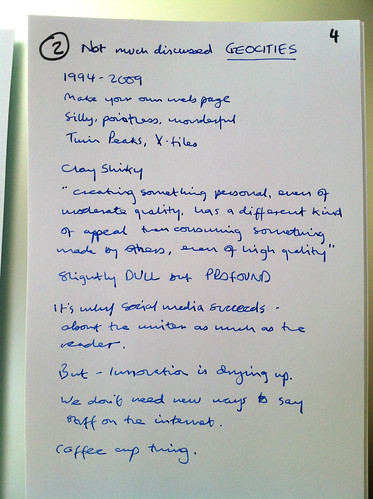 4
2 Not much discussed GEOCITIES
1994-2009
Make your own web page
Silly, pointless, wonderful
Twin Peaks, X-files
Clay Shirky
"creating something personal, even of
moderate quality, has a different kind
of appeal than consuming something
made by others, even of high quality"
Slightly DULL but PROFOUND
It's why social media succeeds -
about the writer as much as the
reader.
But - innovation is drying up.
We don't need new ways to say
stuff on the internet.
Coffee cup thing.